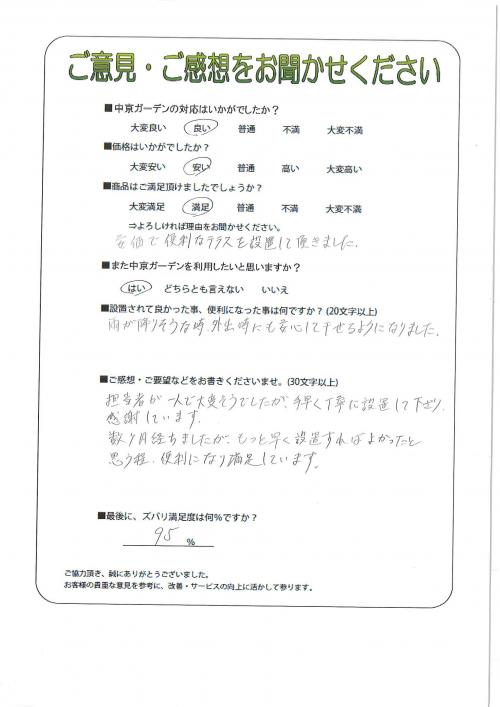 ご意見・ご感想をお聞かせください
■中京ガーデンの対応はいかがでしたか？
大変良い 良い 普通 不満 大変不満
■価格はいかがでしたか？
大変安い 安い 普通 高い 大変高い
■商品はご満足頂けましたでしょうか？
大変満足 満足 普通 不満 大変不満
⇒よろしければ理由をお聞かせください。
安価で便利なテラスを設置して頂きました。
■また中京ガーデンを利用したいと思いますか？
はい どちらとも言えない いいえ
■設置されて良かった事、便利になった事は何ですか？(20文字以上)
雨が降りそうな時、外出時にも安心して干せるようになりました。
■ご感想・ご要望などをお書きくださいませ。(30文字以上)
担当者が一人で大変そうでしたが、手早く丁寧に設置して下さり、
感謝しています。
数ヶ月経ちましたが、もっと早く設置すればよかったと
思う程、便利になり満足しています。
■最後に、ズバリ満足度は何％ですか？
95 %
ご協力頂き、誠にありがとうございました。
お客様の貴重な意見を参考に、改善・サービスの向上に活かして参ります。